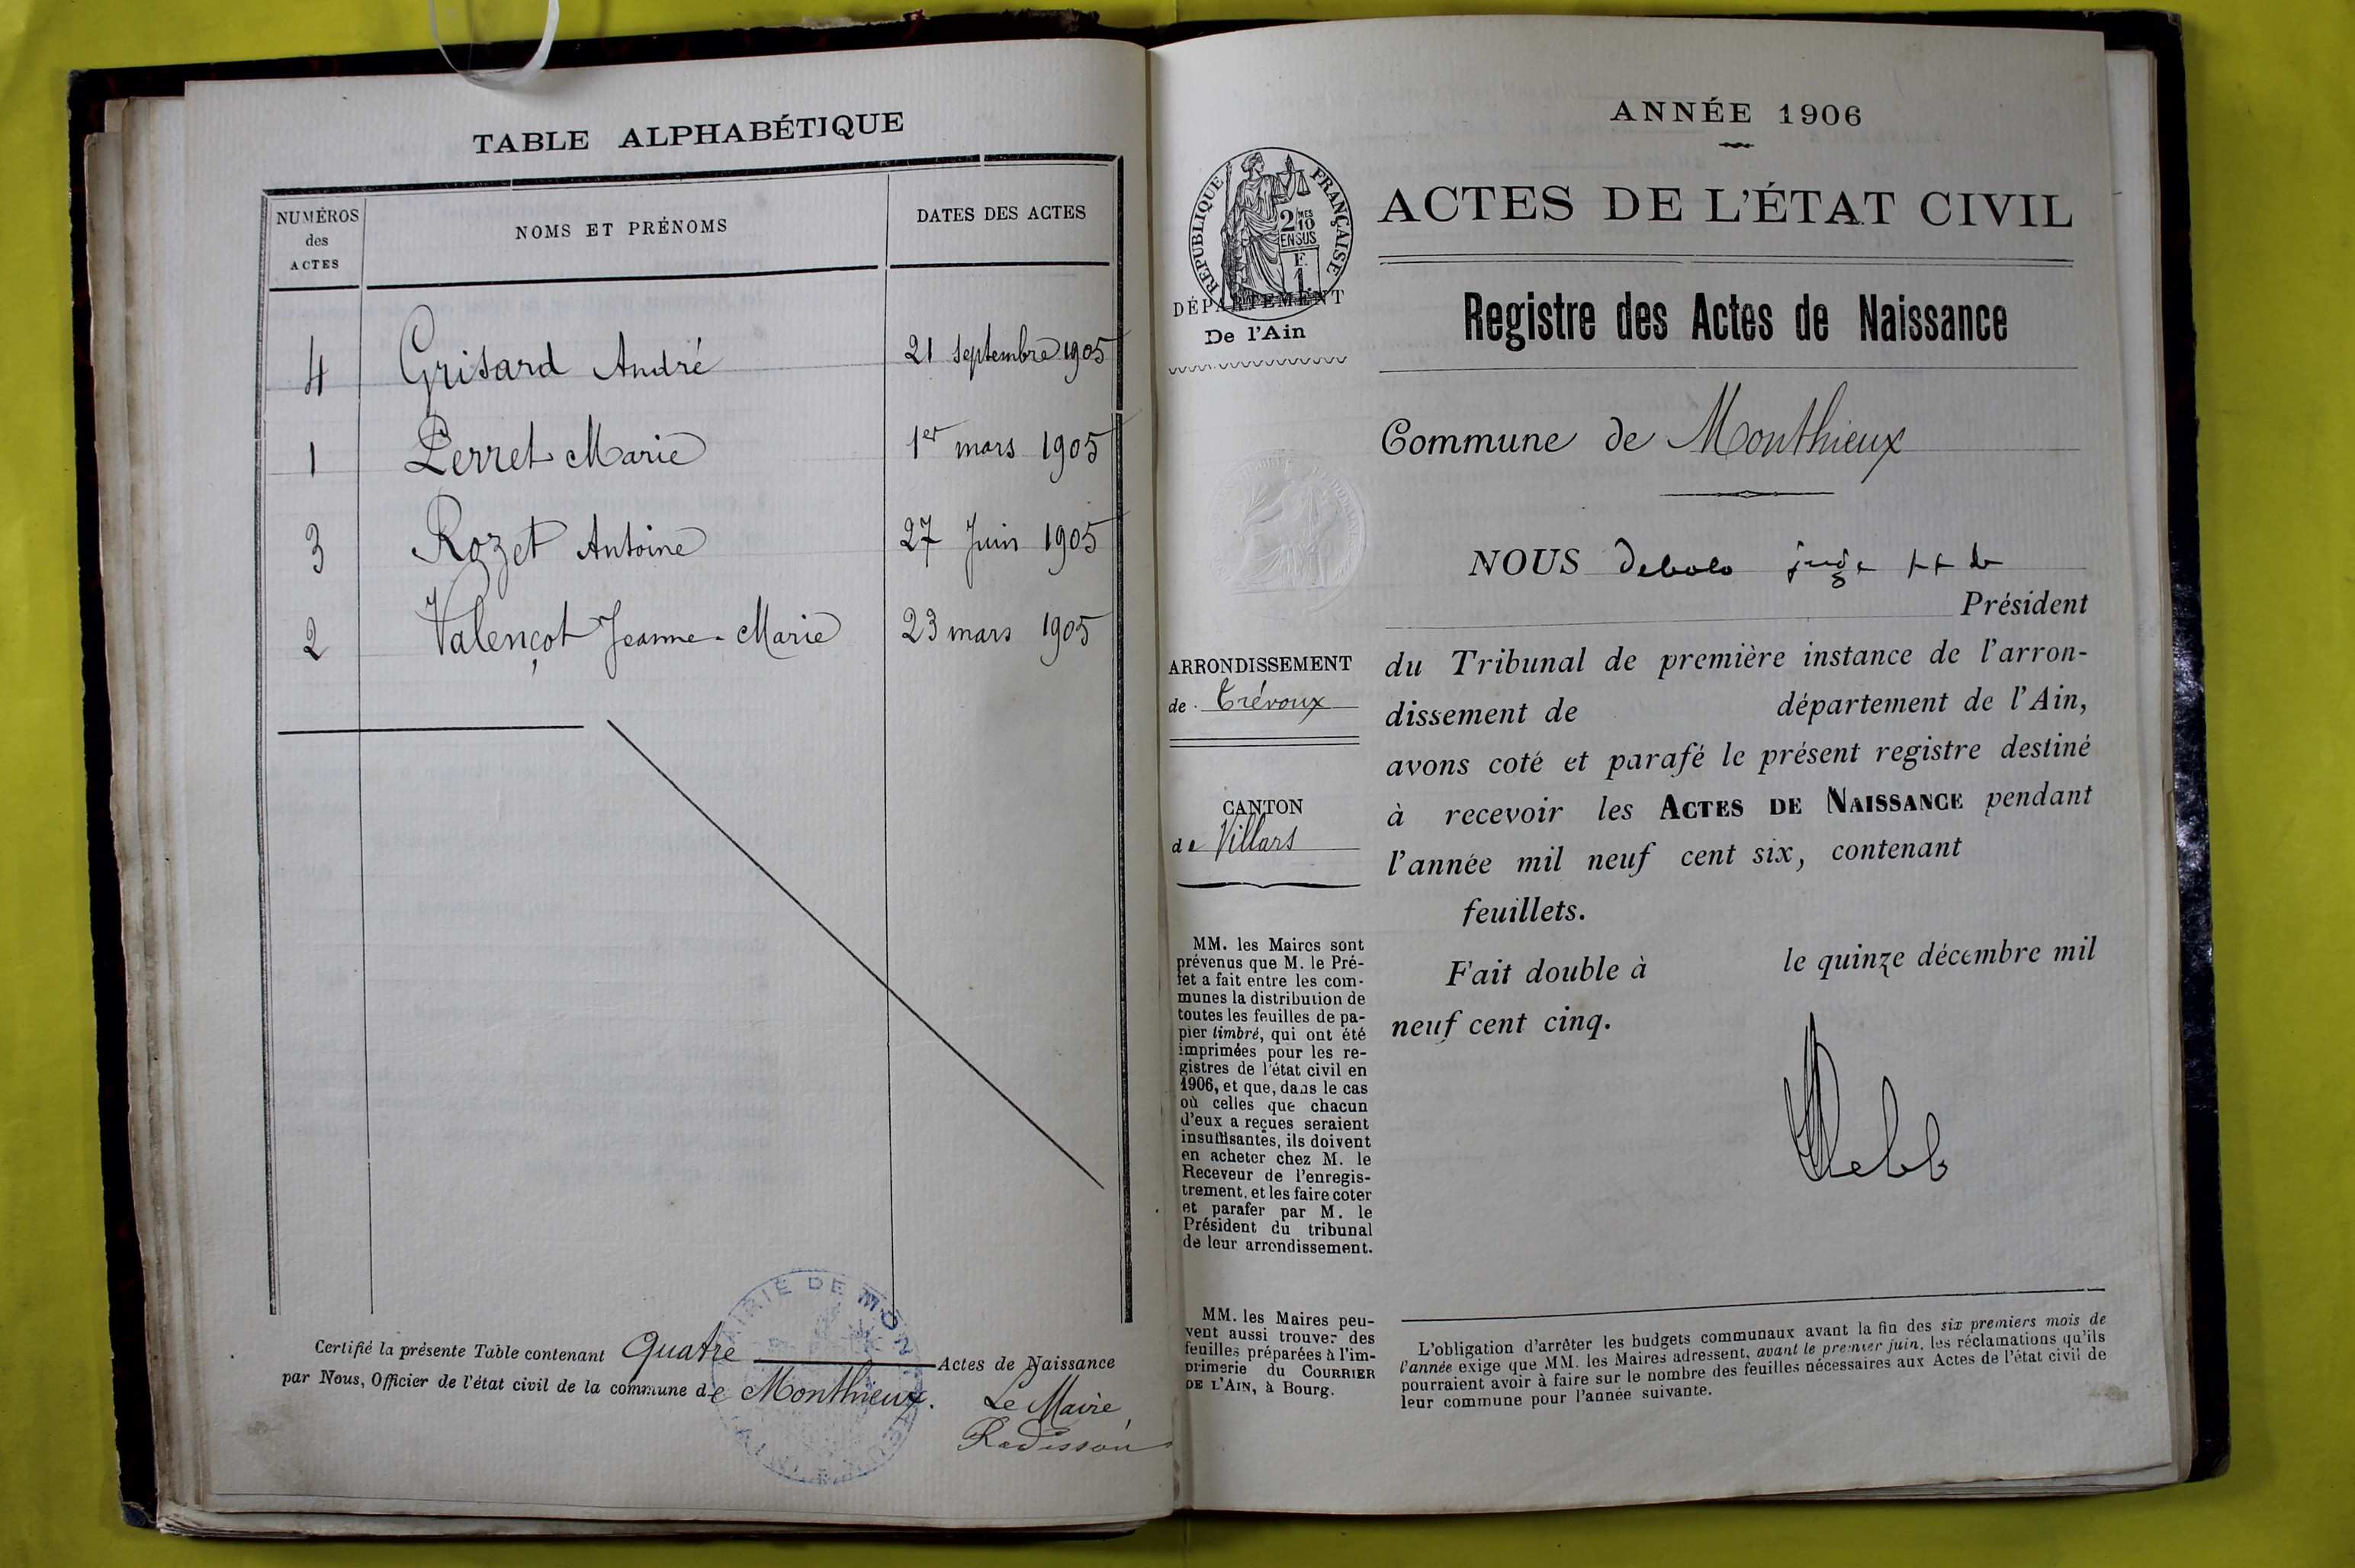 TABLE ALPHABÉTIQUE
NUMÉROS
des
ACTES
NOMS ET PRÉNOMS
DATES DES ACTES
4 Grisard André 21 septembre 1905
1 Perret Marie 1er mars 1905
3 Rozet Antoine 27 Juin 1905
2 Valençot Jeanne-Marie 23 mars 1905
Certifié la présente Table contenant Quatre Actes de Naissance
par Nous, Officier de l'état civil de la commune de Monthieux.
Le Maire,
Radisson
MAIRIE DE MON
AIN
ANNÉE 1906
RÉPUBLIQUE FRANÇAISE
2 MES
10
EN SUS
F.
1.
DÉPARTEMENT
De l'Ain
ACTES DE L'ÉTAT CIVIL
Registre des Actes de Naissance
Commune de Monthieux
ARRONDISSEMENT
de Trévoux
CANTON
de Villars
MM. les Maires sont
prévenus que M. le Pré-
fet a fait entre les com-
munes la distribution de
toutes les feuilles de pa-
pier timbré, qui ont été
imprimées pour les re-
gistres de l'état civil en
1906, et que, dans le cas
où celles que chacun
d'eux a reçues seraient
insuffisantes, ils doivent
en acheter chez M. le
Receveur de l'enregis-
trement, et les faire coter
et parafer par M. le
Président du tribunal
de leur arrondissement.
MM. les Maires peu-
vent aussi trouver des
feuilles préparées à l'im-
primerie du COURRIER
DE L'AIN, à Bourg.
NOUS
Président
du Tribunal de première instance de l'arron-
dissement de département de l'Ain,
avons coté et parafé le présent registre destiné
à recevoir les ACTES DE NAISSANCE pendant
l'année mil neuf cent six, contenant
feuillets.
Fait double à le quinze décembre mil
neuf cent cinq.
L'obligation d'arrêter les budgets communaux avant la fin des six premiers mois de
l'année exige que MM. les Maires adressent, avant le premier juin, les réclamations qu'ils
pourraient avoir à faire sur le nombre des feuilles nécessaires aux Actes de l'état civil de
leur commune pour l'année suivante.